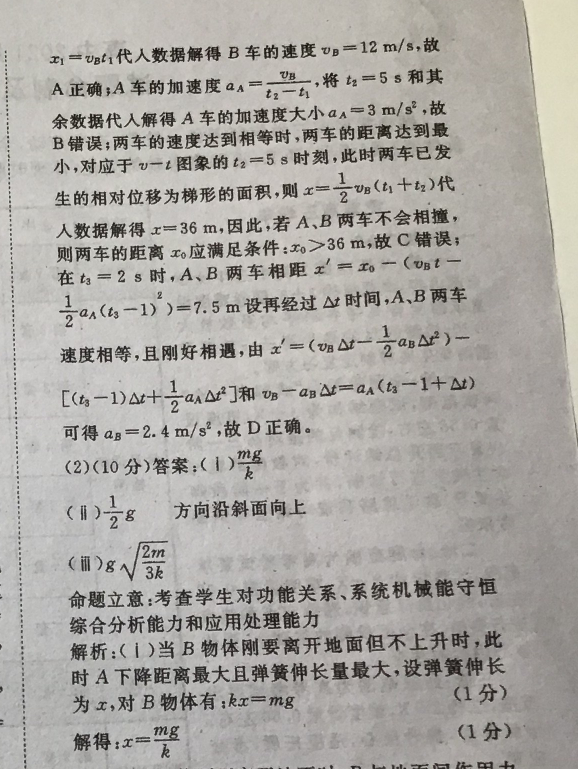 x₁=v_Bt₁代入数据解得 B 车的速度 v_B=12 m/s,故
A 正确;A 车的加速度 a_A=v_B/(t₂-t₁),将 t₂=5 s 和其
余数据代入解得 A 车的加速度大小 a_A=3 m/s²,故
B 错误;两车的速度达到相等时,两车的距离达到最
小,对应于 v-t 图象的 t₂=5 s 时刻,此时两车已发
生的相对位移为梯形的面积,则 x=1/2 v_B(t₁+t₂)代
入数据解得 x=36 m,因此,若 A、B 两车不会相撞,
则两车的距离 x₀应满足条件:x₀>36 m,故 C 错误;
在 t₃=2 s 时,A、B 两车相距 x′=x₀-(v_Bt-
1/2 a_A(t₃-1)²)=7.5 m 设再经过 Δt 时间,A、B 两车
速度相等,且刚好相遇,由 x′=(v_BΔt-1/2 a_BΔt²)-
[(t₃-1)Δt+1/2 a_AΔt²]和 v_B-a_BΔt=a_A(t₃-1+Δt)
可得 a_B=2.4 m/s²,故 D 正确。
(2)(10 分)答案:(ⅰ)mg/k
(ⅱ)1/2 g 方向沿斜面向上
(ⅲ)g√(2m/3k)
命题立意:考查学生对功能关系、系统机械能守恒
综合分析能力和应用处理能力
解析:(ⅰ)当 B 物体刚要离开地面但不上升时,此
时 A 下降距离最大且弹簧伸长量最大,设弹簧伸长
为 x,对 B 物体有:kx=mg (1 分)
解得:x=mg/k (1 分)